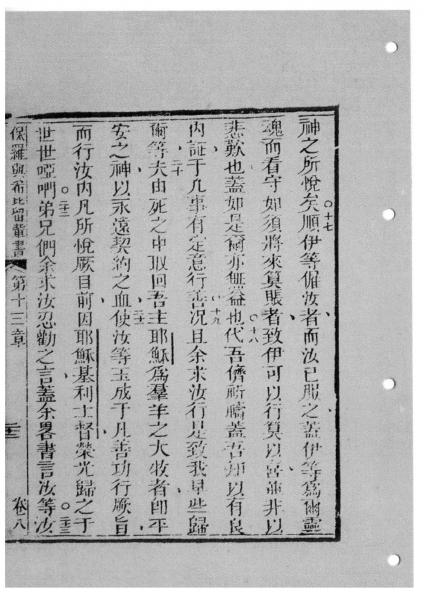 神之所悅矣○十七順伊等催汝者而汝已服之蓋伊等為爾靈
魂而看守如須將來算賬者致伊可以行算以喜並非以
悲歎也蓋如是爾亦無益也○十八代吾儕祈禱蓋吾知以有良
内証于凡事有定意行善○十九況且余求汝行是致我早些歸
爾等二十夫由死之中取回吾主耶穌為羣羊之大牧者即平
安之神以永遠契約之血二十一使汝等玉成于凡善功行厥旨
而行汝内凡所悅厥目前因耶穌基利士督榮光歸之于
世世啞們○二十二弟兄們余求汝忍勸之言蓋余畧書言汝等○二十三汝
保羅與希比留輩書 第十三章 卷八